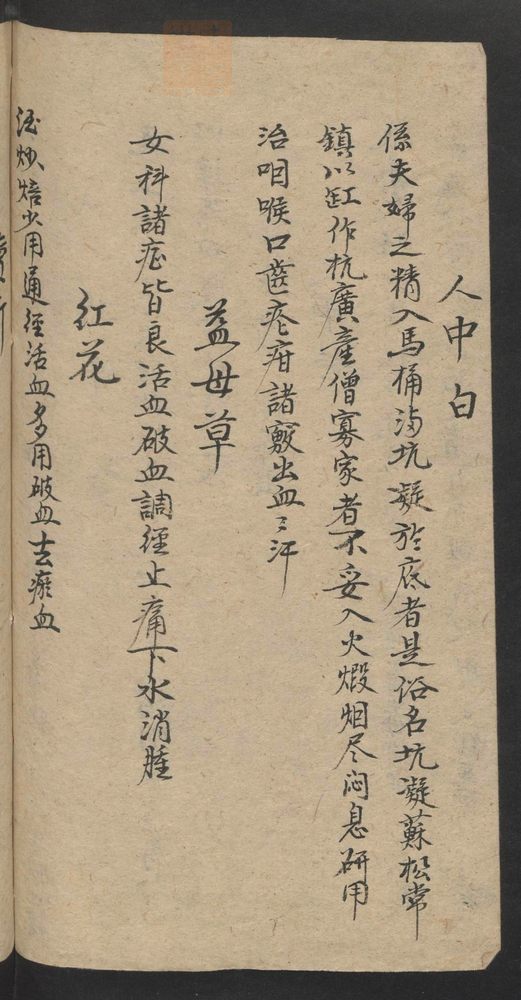 人中白
係夫婦之精入馬桶溺坑凝於底者是俗名坑凝蘇松常
鎮以缸作坑廣產僧寡家者不妥入火煅烟尽闷息研用
治咽喉口齒疮疳諸竅出血〻汗
益母草
女科諸症皆良活血破血調經止痛下水消腫
红花
酒炒焙少用通經活血多用破血去瘀血